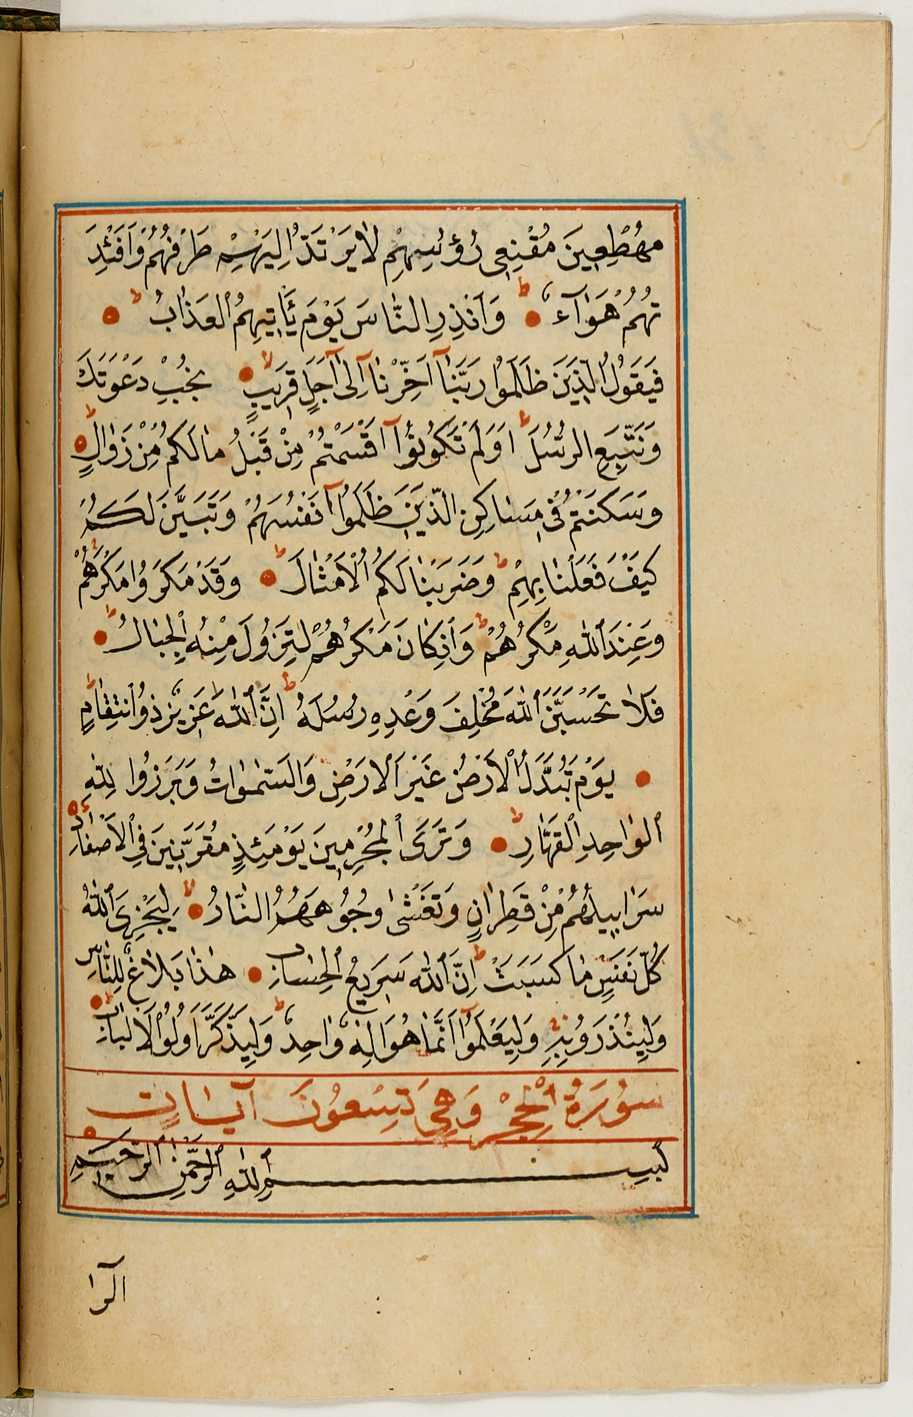 مُهْطِعِينَ مُقْنِعِي رُؤُسِهِمْ لَا يَرْتَدُّ اِلَيْهِمْ طَرْفُهُمْ وَاَفْئِدَ
تُهُمْ هَوَآءٌ ط وَاَنْذِرِ النَّاسَ يَوْمَ يَأْتِيهِمُ الْعَذَابُ ط
فَيَقُولُ الَّذِينَ ظَلَمُوا رَبَّنَآ اَخِّرْنَآ اِلٰىٓ اَجَلٍ قَرِيبٍ لا نُجِبْ دَعْوَتَكَ
وَنَتَّبِعِ الرُّسُلَ ط اَوَلَمْ تَكُونُوٓا اَقْسَمْتُمْ مِنْ قَبْلُ مَالَكُمْ مِنْ زَوَالٍ ط
وَسَكَنْتُمْ فِي مَسَاكِنِ الَّذِينَ ظَلَمُوٓا اَنْفُسَهُمْ وَتَبَيَّنَ لَكُمْ
كَيْفَ فَعَلْنَا بِهِمْ ط وَضَرَبْنَا لَكُمُ الْاَمْثَالَ ط وَقَدْ مَكَرُوا مَكْرَهُمْ
وَعِنْدَ اللّٰهِ مَكْرُهُمْ ط وَاِنْ كَانَ مَكْرُهُمْ لِتَزُولَ مِنْهُ الْجِبَالُ ط
فَلَا تَحْسَبَنَّ اللّٰهَ مُخْلِفَ وَعْدِهِ رُسُلَهُ ط اِنَّ اللّٰهَ عَزِيزٌ ذُو انْتِقَامٍ ط
يَوْمَ تُبَدَّلُ الْاَرْضُ غَيْرَ الْاَرْضِ وَالسَّمٰوَاتُ وَبَرَزُوا لِلّٰهِ
الْوَاحِدِ الْقَهَّارِ ط وَتَرَى الْمُجْرِمِينَ يَوْمَئِذٍ مُقَرَّنِينَ فِي الْاَصْفَادِ
سَرَابِيلُهُمْ مِنْ قَطِرَانٍ وَتَغْشٰى وُجُوهَهُمُ النَّارُ لا لِيَجْزِيَ اللّٰهُ
كُلَّ نَفْسٍ مَا كَسَبَتْ ط اِنَّ اللّٰهَ سَرِيعُ الْحِسَابِ هٰذَا بَلَاغٌ لِلنَّاسِ
وَلِيُنْذَرُوا بِهِ وَلِيَعْلَمُوٓا اَنَّمَا هُوَ اِلٰهٌ وَاحِدٌ وَلِيَذَّكَّرَ اُولُوا الْاَلْبَابِ ط
سُورَةُ الْحِجْرِ وَهِيَ تِسْعُونَ آيَاتٍ
بِسْمِ اللّٰهِ الرَّحْمٰنِ الرَّحِيمِ
الٓرٰ